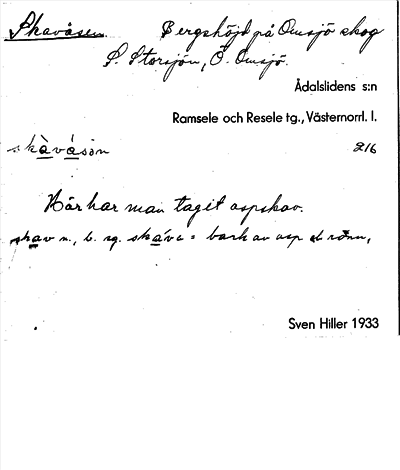 Skavåsen Bergshöjd på Omsjö skog
S. Storsjön, Ö. Omsjö.
Ådalslidens s:n
Ramsele och Resele tg., Västernorrl. l.
skàvásòn 216
Här har man tagit aspskav.
skav n., b. sg. skávε = bark av asp el rönn,
Sven Hiller 1933